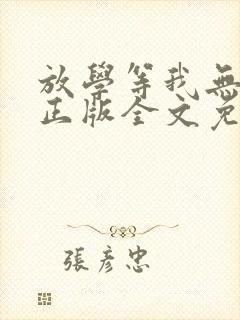 放學等我無
正版全文免
張彥忠